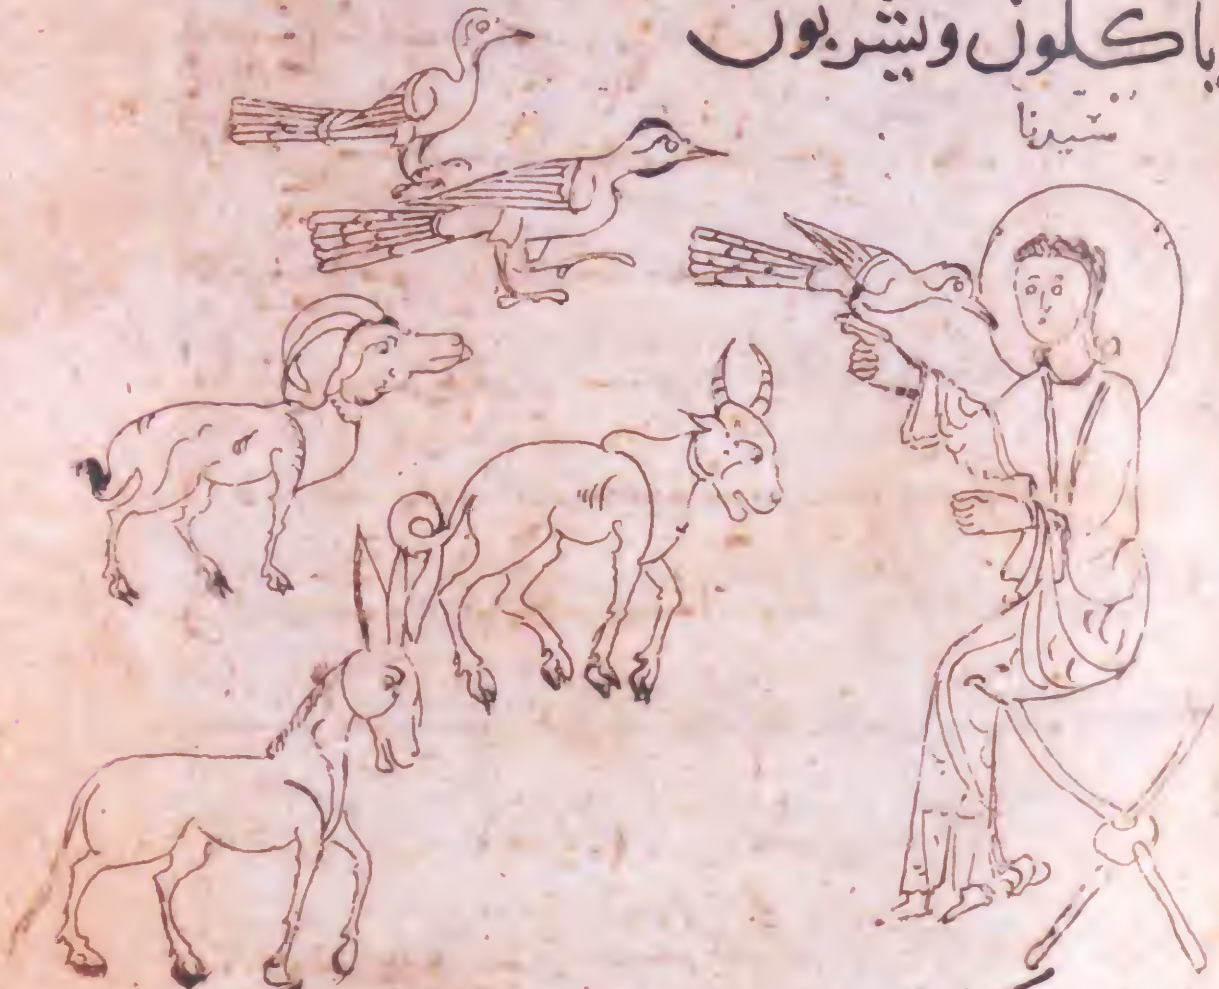 ياكلون ويشربون
سيدنا